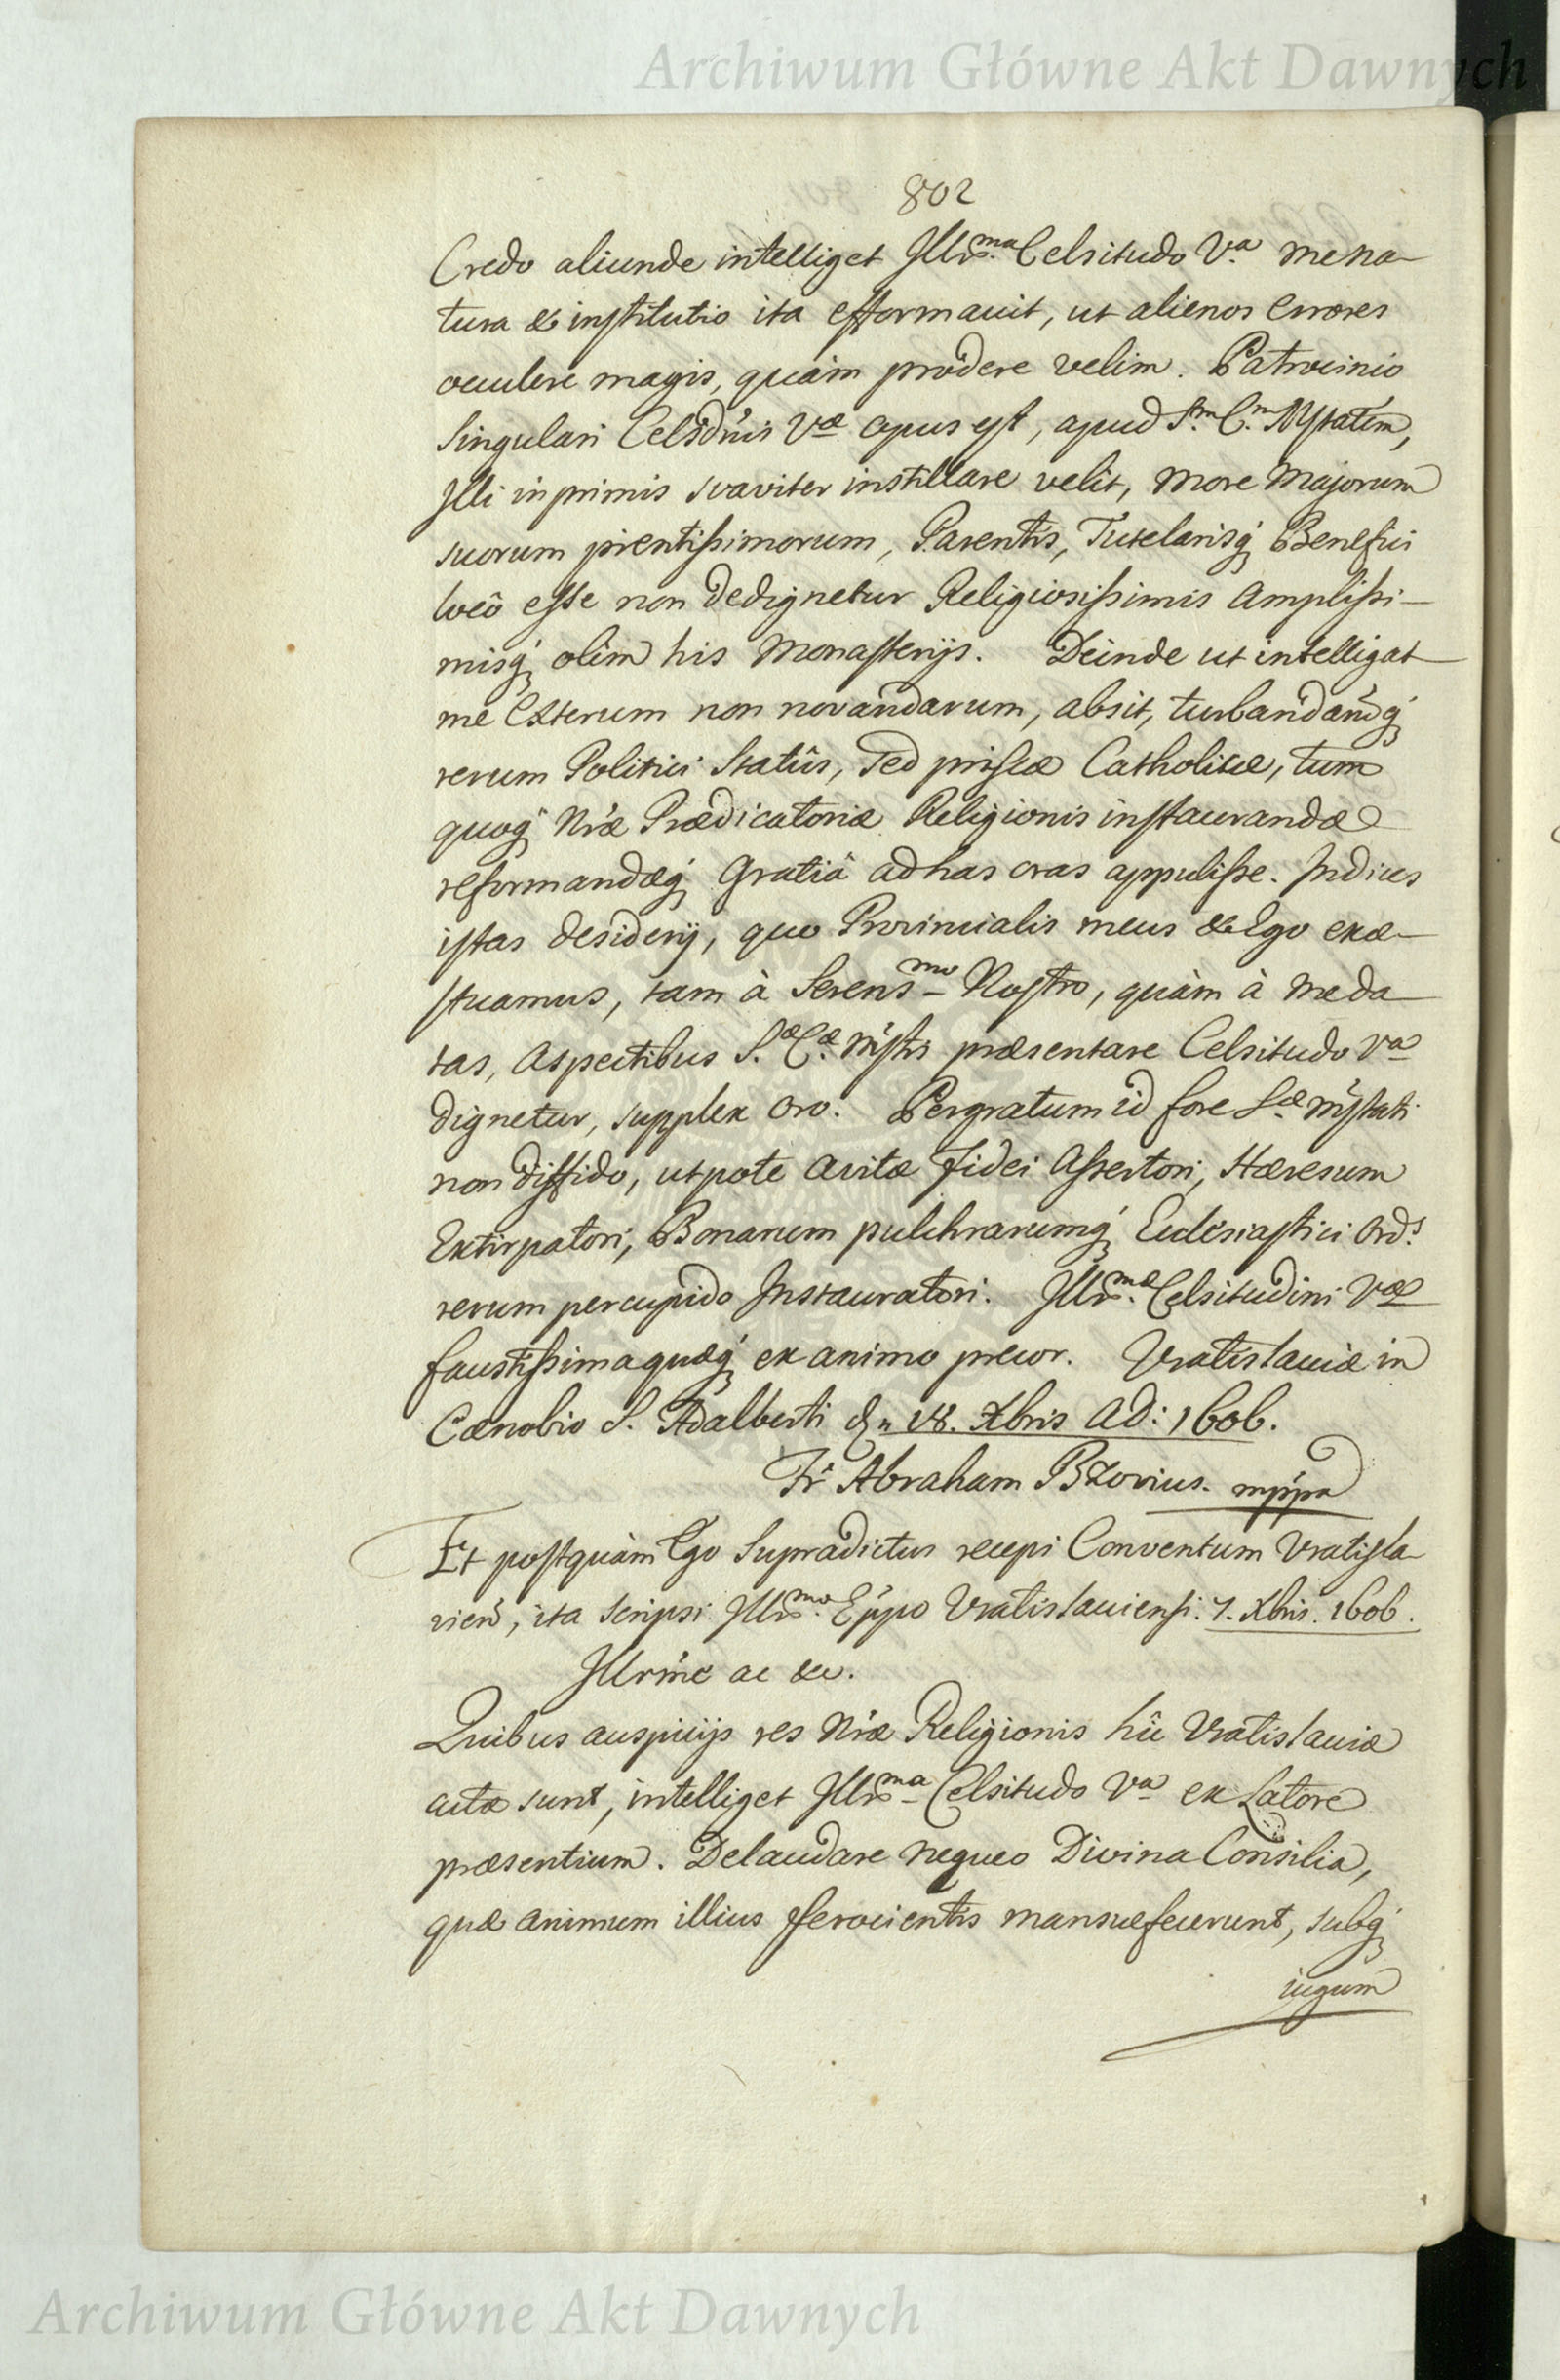 Archiwum Główne Akt Dawnych
802
Credo aliunde intelliget Illr̃ma. Celsitudo Va. me na-
tura & institutio ita efformauit, ut alienos errores
occulere magis, quàm prodere velim. Patrocinio
singulari Celsdñis Væ opus est, apud S.m C.m Mỹstatem,
Illi inprimis suaviter instillare velit, more Majorum
suorum pientissimorum, Parentis, Tutelarisq́ Benefici
locô esse non dedignetur Religiosissimis Amplissi-
misq́ olim his Monasterijs. Deinde ut intelligat
me Exterum non novandarum, absit, turbandarũq́
rerum Politici Statûs, sed priscæ Catholicæ, tum
quoq́ Nr̃æ Prædicatoriæ Religionis instaurandæ
reformandæq́ gratiâ ad has oras appulisse. Indices
istas desiderij, quo Provincialis meus & Ego exæ-
stuamus, tam à Serensmo- Nostro, quàm à me da
tas, Aspectibus S.æ C.æ Mỹstis præsentare Celsitudo Va
dignetur, supplex oro. Pergratum id fore S.æ Mỹstati
non diffido, utpote avitæ Fidei Assertori, Hæresum
Extirpatori, Bonarum pulchrarumq́ Ecclesiastici Ord.s
rerum percupido Instauratori. Illr̃mæ. Celsitudini Væ
faustissima quæq́ ex animo precor. Vratislaviæ in
Cænobio S. Adalberti d. 18. Xbris AD: 1606.
Fr̃ Abraham Bzovius. mp̃pa
Et postquàm Ego Supradictus recepi Conventum Vratisla-
vien̄, ita scripsi Illr̃mo. Ep̃po Vratislauiensi. 7. Xbris. 1606.
Illrm̃e ac &c.
Quibus auspicijs res Nr̃æ Religionis hîc Vratislauiæ
actæ sunt, intelliget Illr̃ma- Celsitudo Va ex Latore
præsentium. Delaudare nequeo Divina Consilia,
quæ animum illius ferocientis mansuefecerunt, subq́
iugum
Archiwum Główne Akt Dawnych